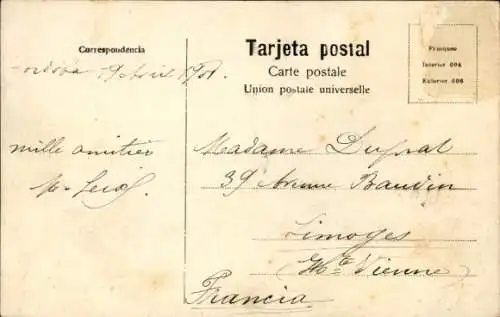 Correspondencia
Tarjeta postal
Carte postale
Union postale universelle
Franqueo
Interior 004
Exterior 006
9 Avril
mille amitiés
Madame Duprat
39 Avenue Baudin
Limoges
Hte Vienne
Francia